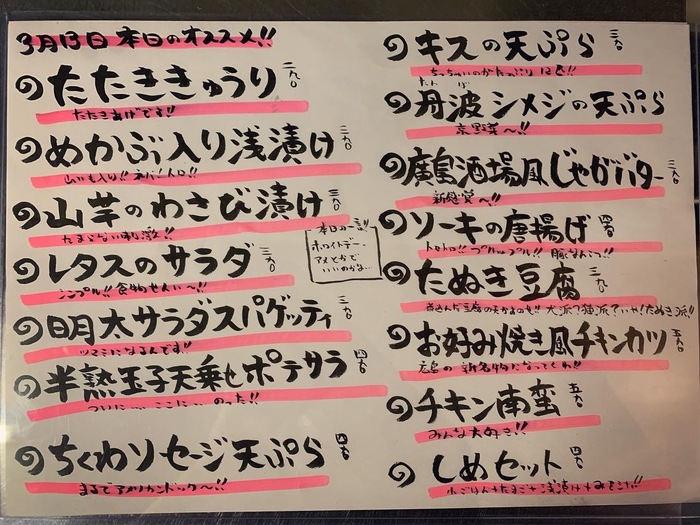 3月13日 本日のオススメ!!
たたききゅうり 二九〇
たたきあげです!!
めかぶ入り浅漬け 三九〇
山いも入り!! ネバトロ!!
山芋のわさび漬け 三九〇
たまらない刺激!!
レタスのサラダ 三九〇
シンプル!! 食物せんい〜!!
明太サラダスパゲッティ 三九〇
ツマミになるんです!!
半熟玉子天乗せポテサラ 四六〇
ついに… ここに… のった!!
ちくわソセージ天ぷら 四六〇
まるでアメリカンドック〜!!
本日の一言!!
ホワイトデー…
アメとかで
いいのかな…
キスの天ぷら 三六〇
丹波シメジの天ぷら
たんば
京野菜〜!!
廣島酒場風じゃがバター 三九〇
新感覚〜!!
ソーキの唐揚げ
トロトロ!! プルップル!! 豚なんこつ!!
たぬき豆腐
犬派?猫派?いや!たぬき派!!
お好み焼き風チキンカツ 五九〇
広島の新名物になってくれ!!
チキン南蛮 五六〇
みんな大好き!!
しめセット 四六〇
小ごはん+たまご+浅漬け+みそ汁!!